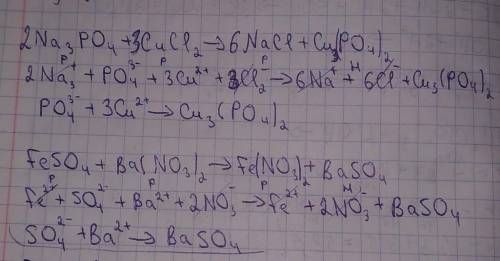 2Na₃PO₄ + 3CuCl₂ → 6NaCl + Cu₃(PO₄)₂
2Na₃⁺ + PO₄³⁻ + 3Cu²⁺ + 3Cl₂⁻ → 6Na⁺ + 6Cl⁻ + Cu₃(PO₄)₂
P P P H
PO₄³⁻ + 3Cu²⁺ → Cu₃(PO₄)₂
FeSO₄ + Ba(NO₃)₂ → Fe(NO₃)₂ + BaSO₄
P P P H
Fe²⁺ + SO₄²⁻ + Ba²⁺ + 2NO₃⁻ → Fe²⁺ + 2NO₃⁻ + BaSO₄
SO₄²⁻ + Ba²⁺ → BaSO₄